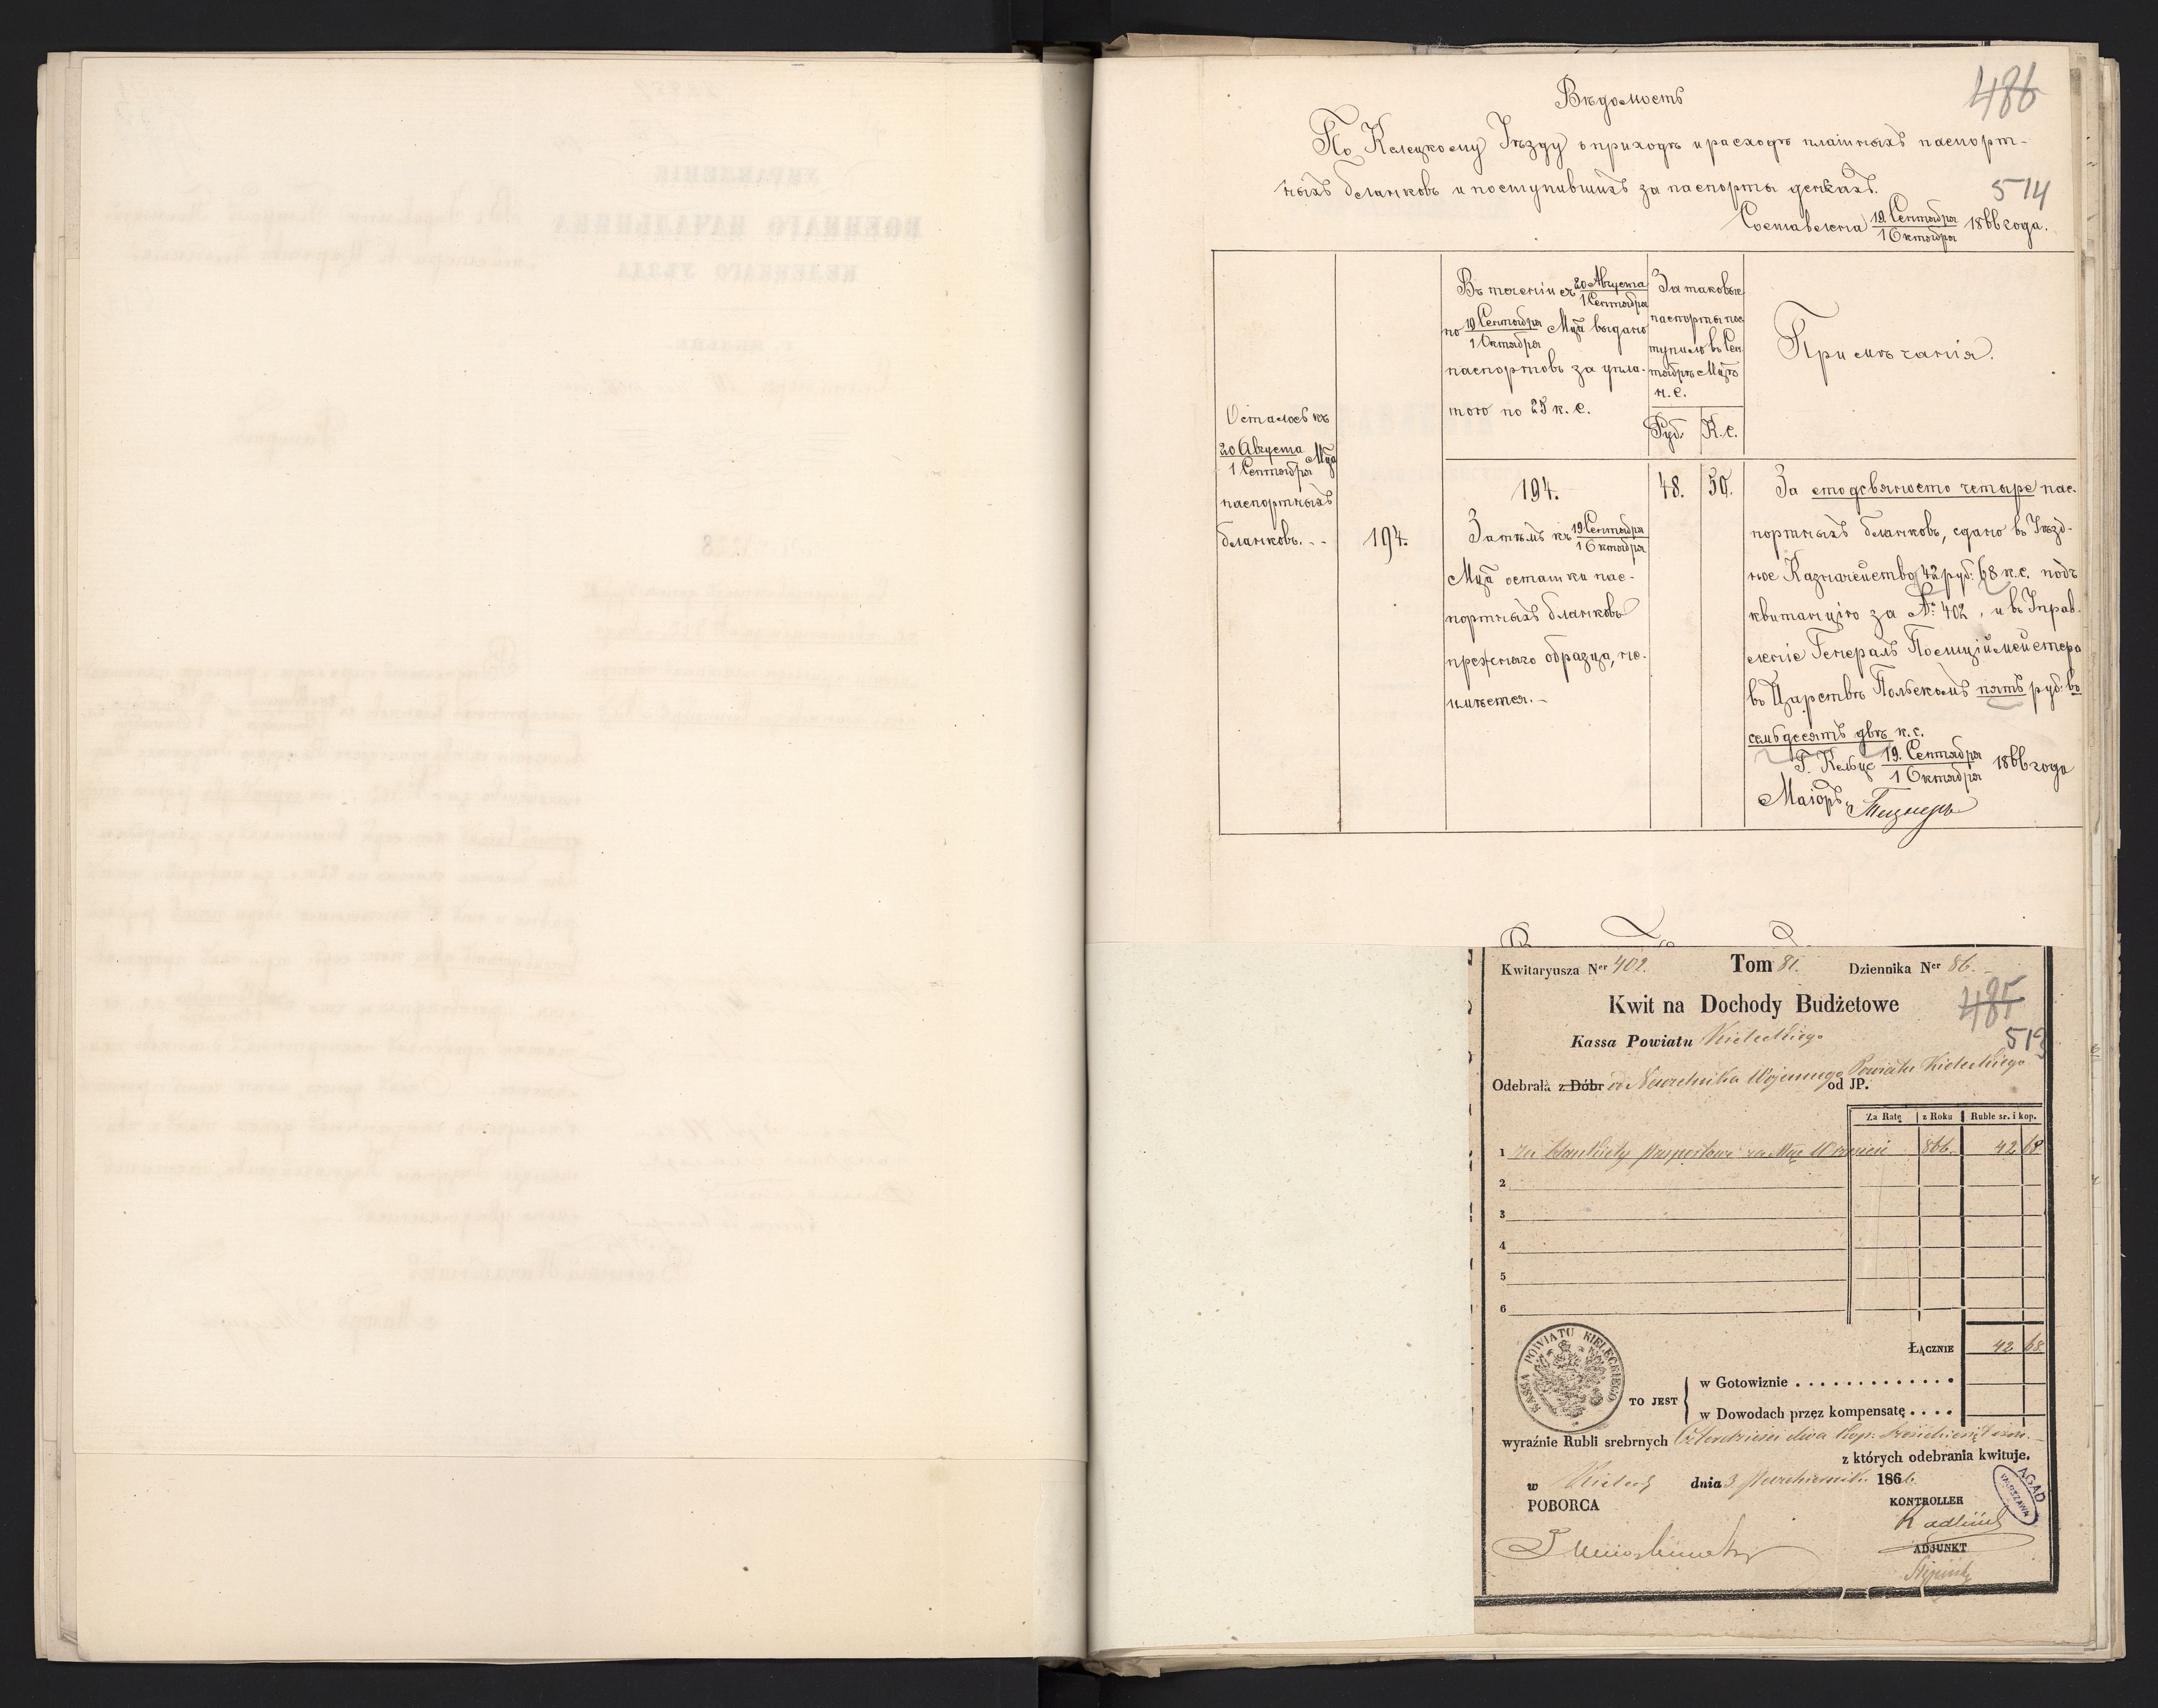 486
Вѣдомость
По Келецкому Уѣзду о приходѣ и расходѣ платныхъ паспорт-
ныхъ бланковъ и поступившихъ за паспорты деньгахъ.
514
Составлена 19 Сентября / 1 Октября 1866 года.
Осталось къ
20 Августа / 1 Сентября Мца
паспортныхъ
бланковъ. - -
194.
Въ теченіи съ 20 Августа / 1 Сентября
по 19 Сентября / 1 Октября Мца выдано
паспортовъ за упла-
тою по 25 к. с.
За таковые
паспорты пос
тупило въ Сен
тябрѣ Мцѣ
н. с.
Руб. К. с.
Примѣчанія.
194.
48. 50.
Затѣмъ къ 19 Сентября / 1 Октября
Мца остатки пас-
портныхъ бланковъ
прежняго образца, не-
имѣется. -
За сто девяносто четыре пас-
портныхъ бланковъ, сдано въ Уѣзд-
ное Казначейство 42 руб. 68 к. с. подъ
квитанцію за № 402, и въ Управ-
леніе Генералъ Полиціймейстера
въ Царствѣ Польскомъ пять руб. во
семьдесятъ двѣ к. с.
Г. Кельце 19. Сентября / 1 Октября 1866 года
Маіоръ
Kwitaryusza Ner 402. Tom 81. Dziennika Ner 86.
Kwit na Dochody Budżetowe
485
513
Kassa Powiatu Kieleckiego
Odebrała z Dóbr od Naczelnika Wojennego od JP. Powiatu Kieleckiego
Za Ratę z Roku Ruble sr. i kop.
1 Za blankiety paszportowe za Mc Wrzesień 866. 42 68
2
3
4
5
6
ŁĄCZNIE 42 68
KASSA POWIATU KIELECKIEGO
TO JEST
w Gotowiznie . . . . . . . . . . . . .
w Dowodach przęz kompensatę . . . .
wyraźnie Rubli srebrnych Czterdzieści dwa kop. sześćdziesiąt ośm.
z których odebrania kwituje.
w Kielcach dnia 3 Października 1866.
POBORCA
KONTROLLER
ADJUNKT
AGAD
WARSZAWA